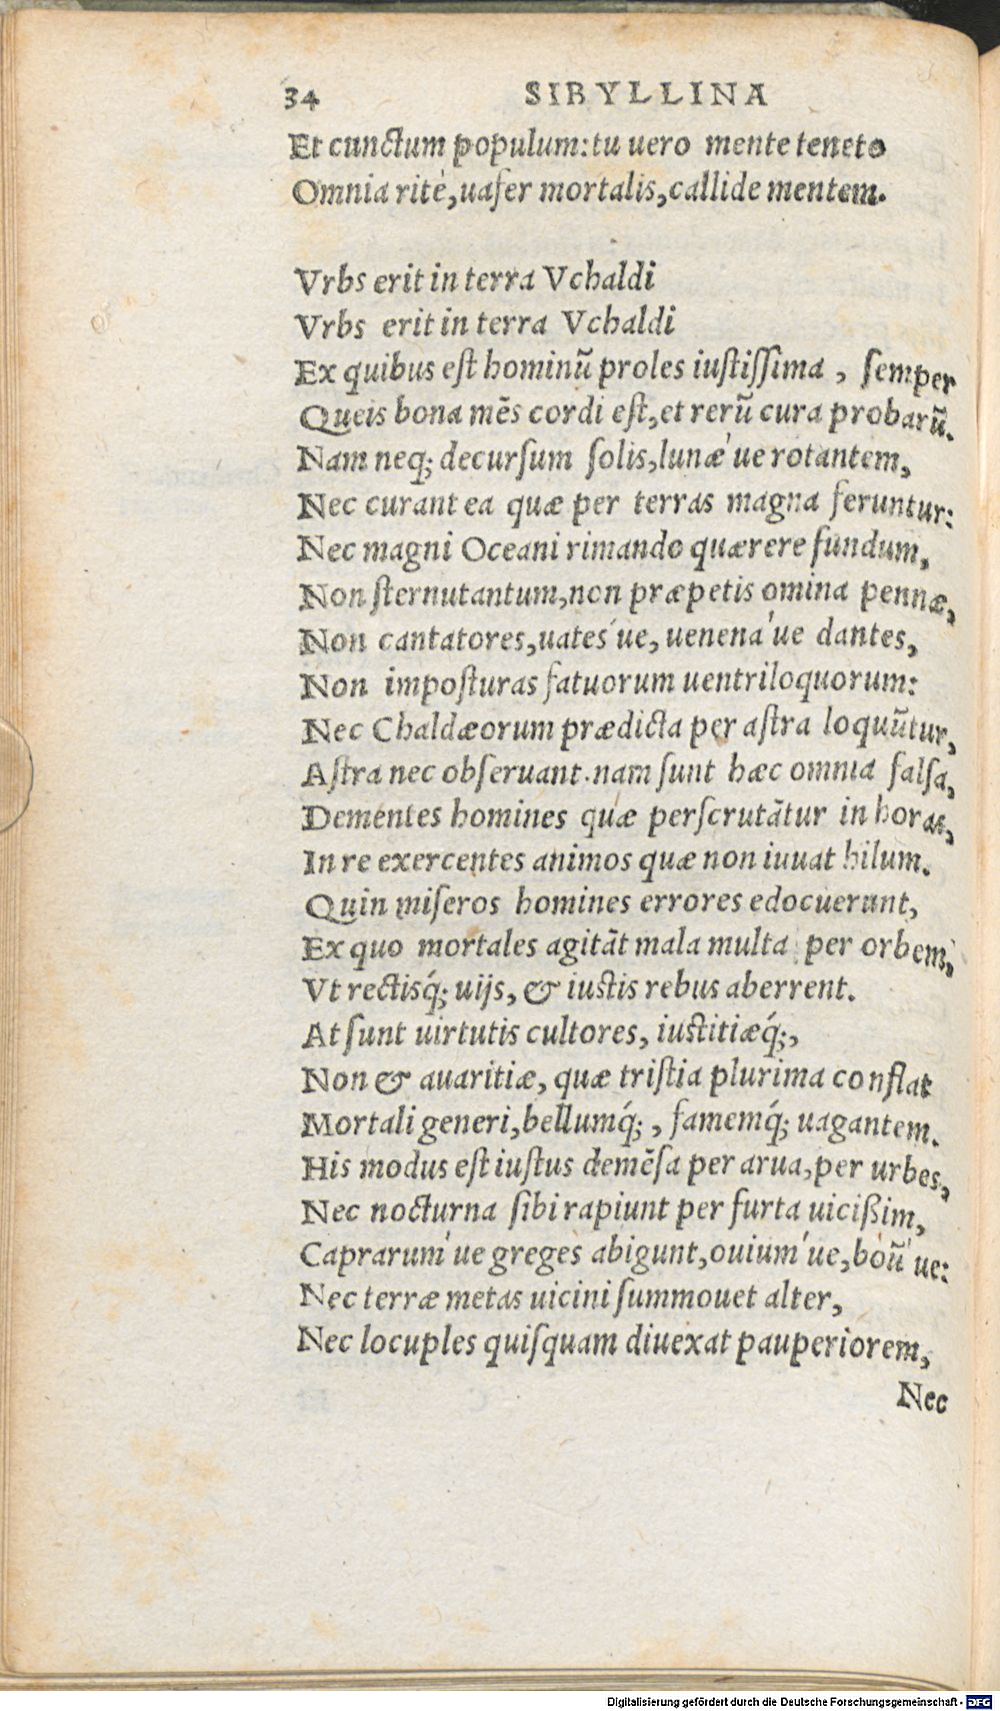 34 SIBYLLINA
Et cunctum populum: tu uero mente teneto
Omnia rite, uafer mortalis, callide mentem.
Vrbs erit in terra Vchaldi
Vrbs erit in terra Vchaldi
Ex quibus eſt hominū proles iuſtiſſima, ſemper
Queis bona mēs cordi eſt, et rerū cura probarū.
Nam neq; decurſum ſolis, lunæ'ue rotantem,
Nec curant ea quæ per terras magna feruntur:
Nec magni Oceani rimando quærere fundum,
Non ſternutantum, non præpetis omina pennæ,
Non cantatores, uates'ue, uenena'ue dantes,
Non impoſturas fatuorum uentriloquorum:
Nec Chaldæorum prædicta per aſtra loquūtur,
Aſtra nec obſeruant. nam ſunt hæc omnia falſa,
Dementes homines quæ perſcrutātur in horas,
In re exercentes animos quæ non iuuat hilum.
Quin miſeros homines errores edocuerunt,
Ex quo mortales agitāt mala multa per orbem,
Vt rectisq́; uijs, & iuſtis rebus aberrent.
At ſunt uirtutis cultores, iuſtitiæq́;,
Non & auaritiæ, quæ triſtia plurima conflat
Mortali generi, bellumq́;, famemq́; uagantem.
His modus eſt iuſtus demēſa per arua, per urbes,
Nec nocturna ſibi rapiunt per furta uicißim,
Caprarum'ue greges abigunt, ouium'ue, boū'ue:
Nec terræ metas uicini ſummouet alter,
Nec locuples quiſquam diuexat pauperiorem,
Nec
Digitalisierung gefördert durch die Deutsche Forschungsgemeinschaft - DFG